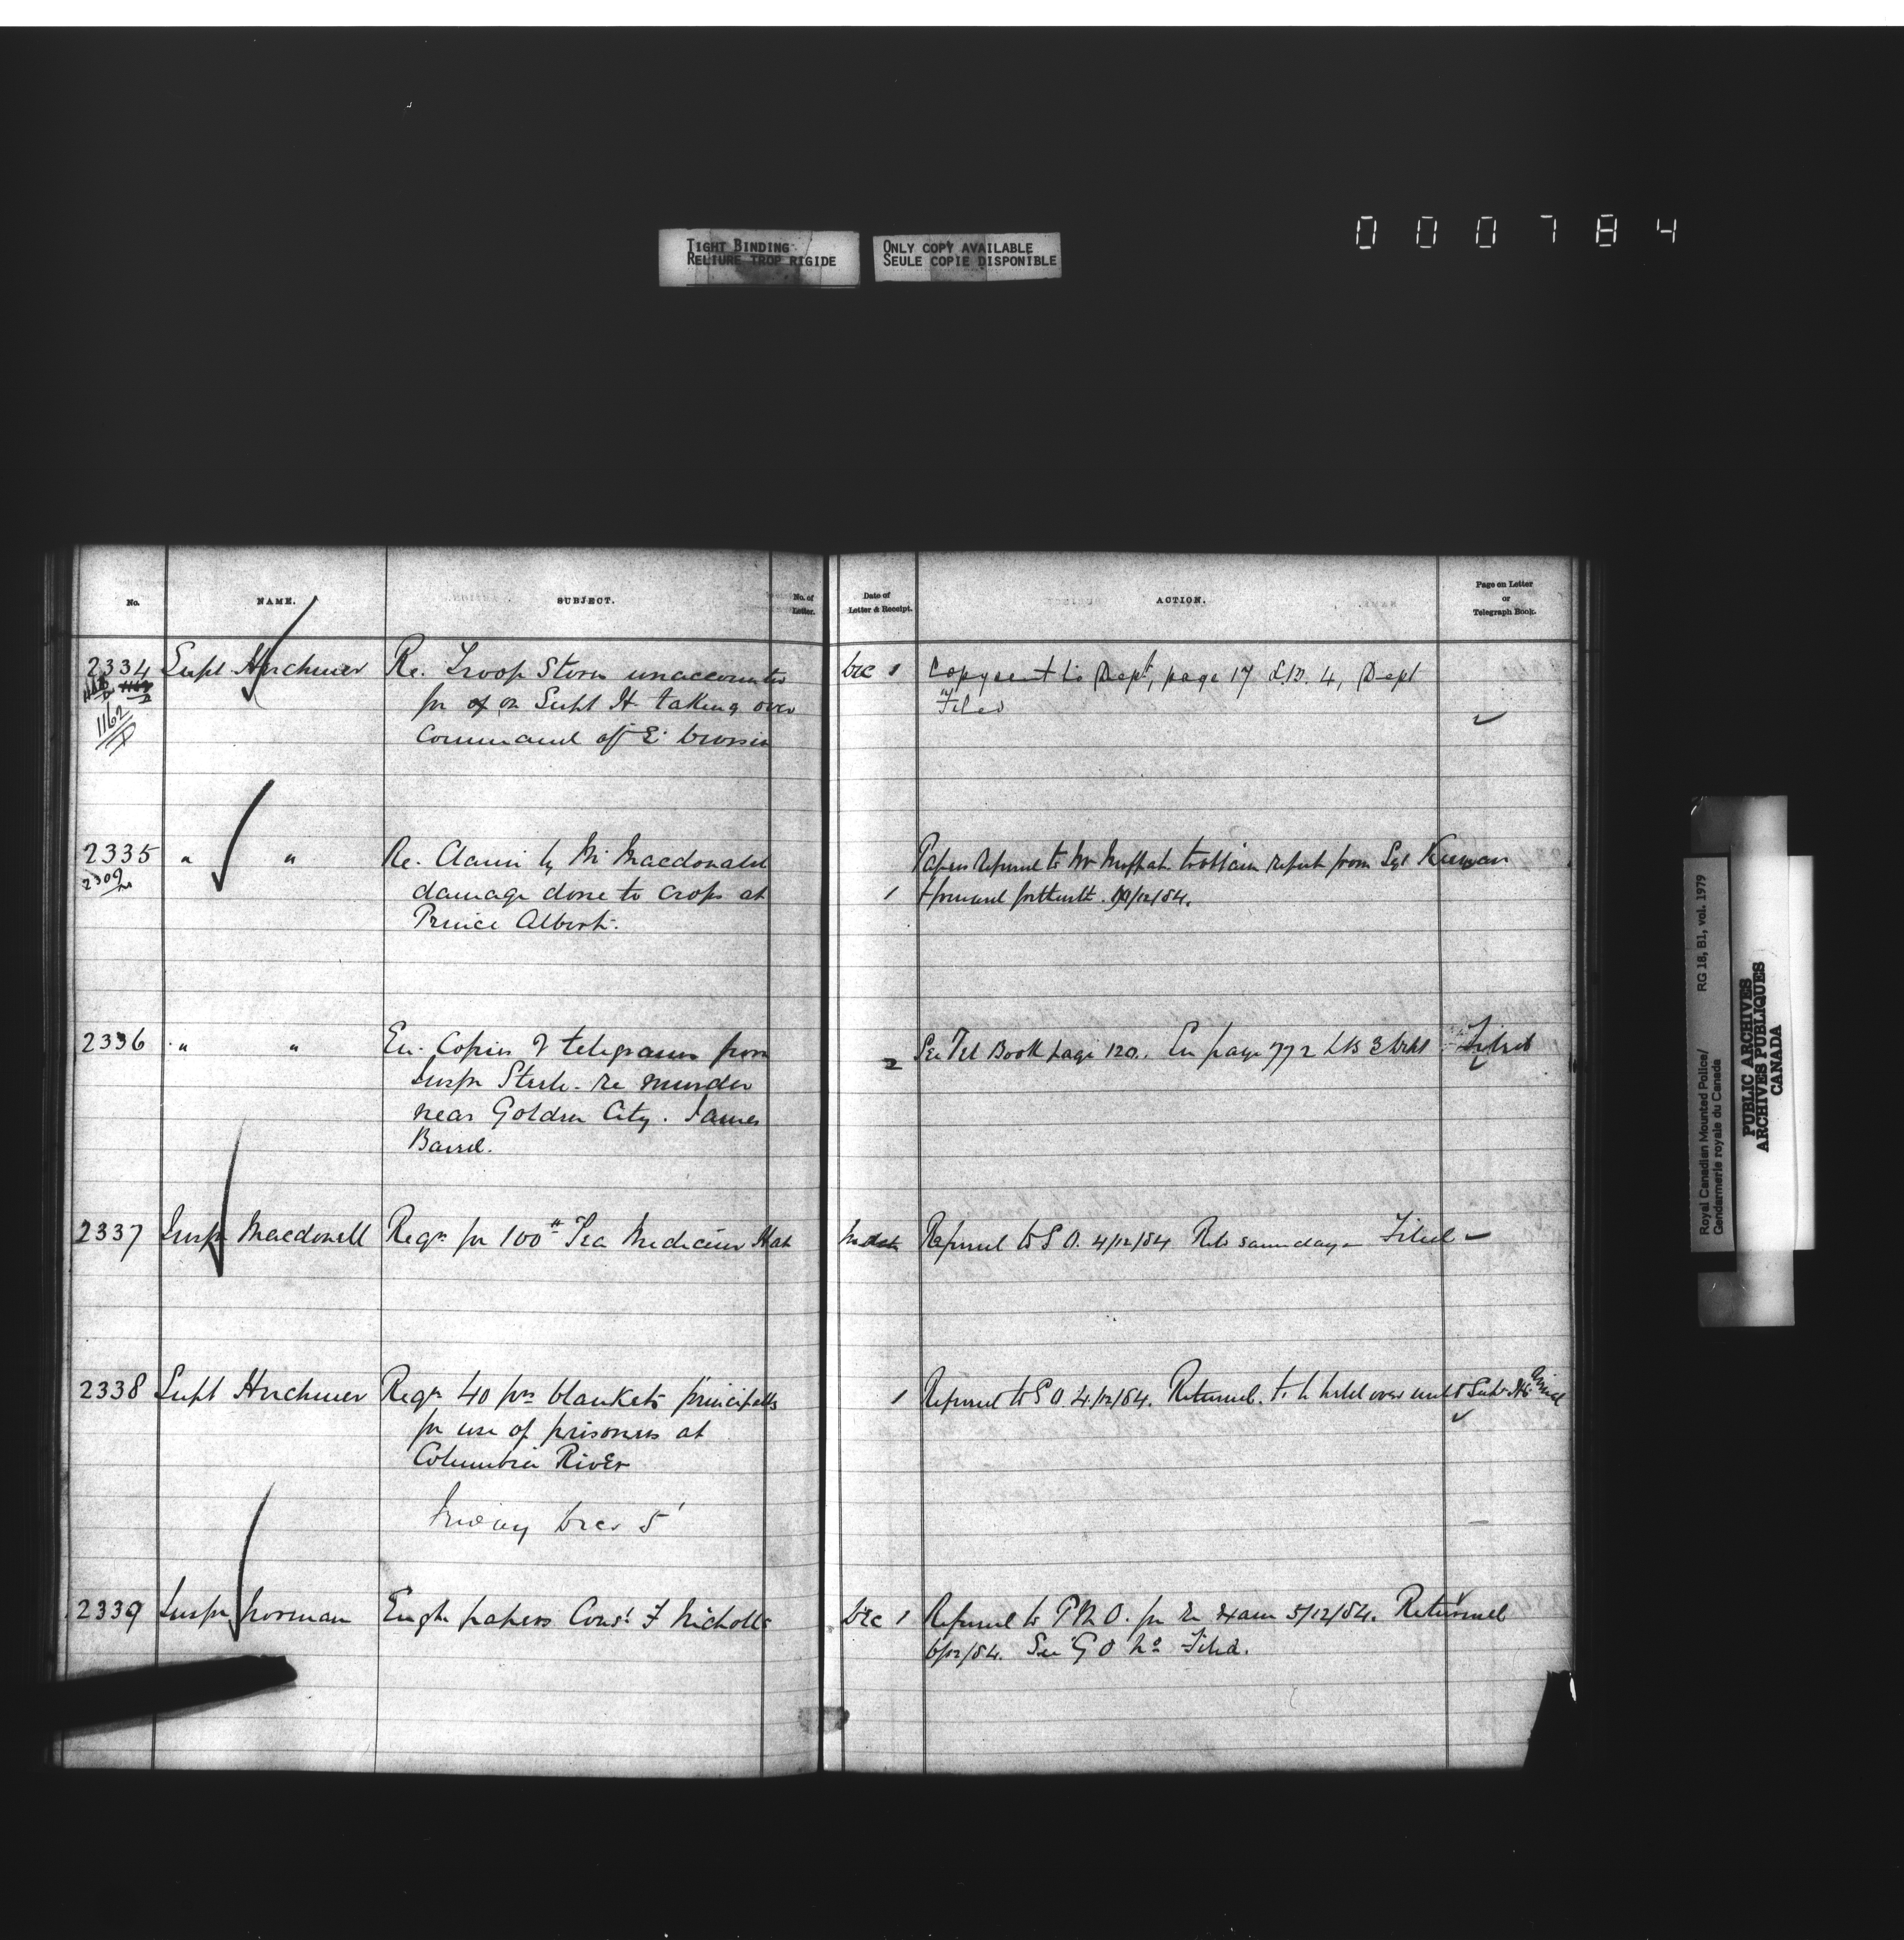 000784
TIGHT BINDING
RELIURE TROP RIGIDE
ONLY COPY AVAILABLE
SEULE COPIE DISPONIBLE
No. NAME. SUBJECT. No. of Letter. Date of Letter & Receipt. ACTION. Page on Letter or Telegraph Book.
2334 Supt Herchmer Re. Troop Stores unaccounted Dec 1 Copy sent to Dept, page 17 L.B. 4, Dept
1162 for on Supt H. taking over Filed
D Command of E. Division
2335 " " Re. Claim by Mr Macdonald Papers Referred to Mr Moffatt to obtain report from Sgt Keenan
2309 damage done to crops at 1 & forward forthwith. /12/84.
Prince Albert.
2336 " " En. Copies of telegrams from 2 See Tel Book page 120. En page 772 LB 3 Dept Filed
Inspr Steele re murder
near Golden City. James
Baird.
2337 Inspr Macdonell Reqn for 100# Tea Medicine Hat No date Referred to S.O. 4/12/84 Retd same day - Filed
2338 Supt Herchmer Reqn 40 prs blankets principally 1 Referred to S O 4/12/84. Returned. to be held over until Supt H's arrival
for use of prisoners at
Columbia River
Friday Dec 5
2339 Inspr Norman Engt papers Const F Nicholls Dec 1 Referred to P M O. for Re Exam 5/12/84. Returned
6/12/84. See G O No Filed.
Royal Canadian Mounted Police/
Gendarmerie royale du Canada
RG 18, B1, vol. 1979
PUBLIC ARCHIVES
ARCHIVES PUBLIQUES
CANADA